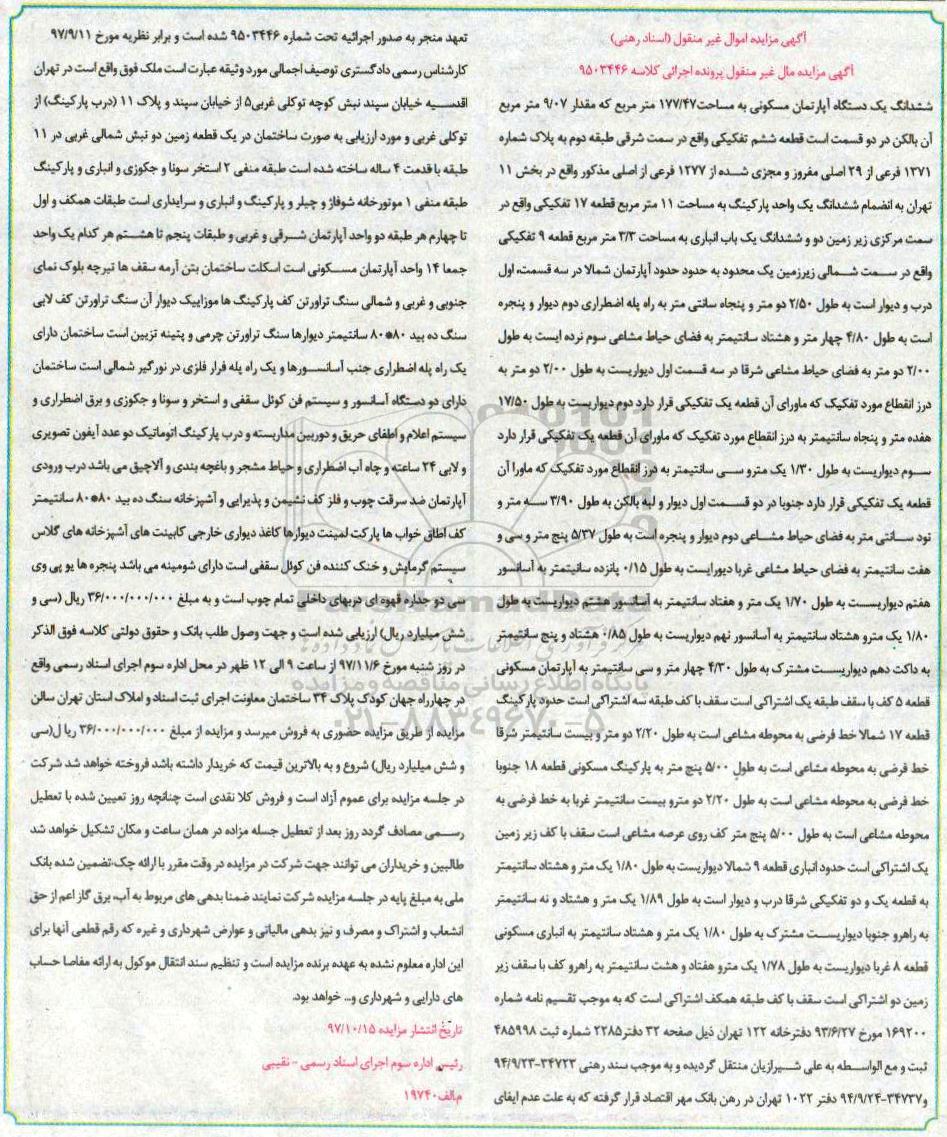 آگهی مزایده اموال غیر منقول (اسناد رهنی)
آگهی مزایده مال غیر منقول پرونده اجرائی کلاسه ۹۵۰۳۴۴۶
ششدانگ یک دستگاه آپارتمان مسکونی به مساحت۱۷۷/۴۷ متر مربع که مقدار ۹/۰۷ متر مربع
آن بالکن در دو قسمت است قطعه ششم تفکیکی واقع در سمت شرقی طبقه دوم به پلاک شماره
۱۳۷۱ فرعی از ۲۹ اصلی مفروز و مجزی شده از ۱۲۷۷ فرعی از اصلی مذکور واقع در بخش ۱۱
تهران به انضمام ششدانگ یک واحد پارکینگ به مساحت ۱۱ متر مربع قطعه ۱۷ تفکیکی واقع در
سمت مرکزی زیر زمین دو و ششدانگ یک باب انباری به مساحت ۳/۳ متر مربع قطعه ۹ تفکیکی
واقع در سمت شمالی زیرزمین یک محدود به حدود حدود آپارتمان شمالا در سه قسمت، اول
درب و دیوار است به طول ۲/۵۰ دو متر و پنجاه سانتی متر به راه پله اضطراری دوم دیوار و پنجره
است به طول ۴/۸۰ چهار متر و هشتاد سانتیمتر به فضای حیاط مشاعی سوم نرده ایست به طول
۲/۰۰ دو متر به فضای حیاط مشاعی شرقا در سه قسمت اول دیواریست به طول ۲/۰۰ دو متر به
درز انقطاع مورد تفکیک که ماورای آن قطعه یک تفکیکی قرار دارد دوم دیواریست به طول ۱۷/۵۰
هفده متر و پنجاه سانتیمتر به درز انقطاع مورد تفکیک که ماورای آن قطعه یک تفکیکی قرار دارد
سوم دیواریست به طول ۱/۳۰ یک مترو سی سانتیمتر به درز انقطاع مورد تفکیک که ماورا آن
قطعه یک تفکیکی قرار دارد جنوبا در دو قسمت اول دیوار و لبه بالکن به طول ۳/۹۰ سه متر و
نود سانتی متر به فضای حیاط مشاعی دوم دیوار و پنجره است به طول ۵/۳۷ پنج متر و سی و
هفت سانتیمتر به فضای حیاط مشاعی غربا دیورایست به طول ۰/۱۵ پانزده سانیتمتر به آسانسور
هفتم دیواریست به طول ۱/۷۰ یک متر و هفتاد سانتیمتر به آسانسور هشتم دیواریست به طول
۱/۸۰ یک مترو هشتاد سانتیمتر به آسانسور نهم دیواریست به طول ۰/۸۵ هشتاد و پنج سانتیمتر
به داکت دهم دیواریست مشترک به طول ۴/۳۰ چهار متر و سی سانتیمتر به آپارتمان مسکونی
قطعه ۵ کف با سقف طبقه یک اشتراکی است سقف با کف طبقه سه اشتراکی است حدود پارکینگ
قطعه ۱۷ شمالا خط فرضی به محوطه مشاعی است به طول ۲/۲۰ دو متر و بیست سانتیمتر شرقا
خط فرضی به محوطه مشاعی است به طول ۵/۰۰ پنج متر به پارکینگ مسکونی قطعه ۱۸ جنوبا
خط فرضی به محوطه مشاعی است به طول ۲/۲۰ دو مترو بیست سانتیمتر غربا به خط فرضی به
محوطه مشاعی است به طول ۵/۰۰ پنج متر کف روی عرصه مشاعی است سقف با کف زیر زمین
یک اشتراکی است حدود انباری قطعه ۹ شمالا دیواریست به طول ۱/۸۰ یک متر و هشتاد سانتیمتر
به قطعه یک و دو تفکیکی شرقا درب و دیوار است به طول ۱/۸۹ یک متر و هشتاد و نه سانتیمتر
به راهرو جنوبا دیواریست مشترک به طول ۱/۸۰ یک متر و هشتاد سانتیمتر به انباری مسکونی
قطعه ۸ غربا دیواریست به طول ۱/۷۸ یک مترو هفتاد و هشت سانتیمتر به راهرو کف با سقف زیر
زمین دو اشتراکی است سقف با کف طبقه همکف اشتراکی است که به موجب تقسیم نامه شماره
۱۶۹۲۰۰ مورخ ۹۳/۶/۲۷ دفترخانه ۱۲۲ تهران ذیل صفحه ۳۲ دفتر۲۲۸۵ شماره ثبت ۴۸۵۹۹۸
ثبت و مع الواسطه به علی شیرازیان منتقل گردیده و به موجب سند رهنی ۳۴۷۲۳-۹۴/۹/۲۳
و۳۴۷۳۷-۹۴/۹/۲۴ دفتر ۱۰۲۲ تهران در رهن بانک مهر اقتصاد قرار گرفته که به علت عدم ایفای
تعهد منجر به صدور اجرائیه تحت شماره ۹۵۰۳۴۴۶ شده است و برابر نظریه مورخ ۹۷/۹/۱۱
کارشناس رسمی دادگستری توصیف اجمالی مورد وثیقه عبارت است ملک فوق واقع است در تهران
اقدسیه خیابان سپند نبش کوچه توکلی غربی۵ از خیابان سپند و پلاک ۱۱ (درب پارکینگ) از
توکلی غربی و مورد ارزیابی به صورت ساختمان در یک قطعه زمین دو نبش شمالی غربی در ۱۱
طبقه با قدمت ۴ ساله ساخته شده است طبقه منفی ۲ استخر سونا و جکوزی و انباری و پارکینگ
طبقه منفی ۱ موتورخانه شوفاژ و چیلر و پارکینگ و انباری و سرایداری است طبقات همکف و اول
تا چهارم هر طبقه دو واحد آپارتمان شرقی و غربی و طبقات پنجم تا هشتم هر کدام یک واحد
جمعا ۱۴ واحد آپارتمان مسکونی است اسکلت ساختمان بتن آرمه سقف ها تیرچه بلوک نمای
جنوبی و غربی و شمالی سنگ تراورتن کف پارکینگ ها موزاییک دیوار آن سنگ تراورتن کف لابی
سنگ ده بید ۸۰*۸۰ سانتیمتر دیوارها سنگ تراورتن چرمی و پتینه تزیین است ساختمان دارای
یک راه پله اضطراری جنب آسانسورها و یک راه پله فرار فلزی در نورگیر شمالی است ساختمان
دارای دو دستگاه آسانسور و سیستم فن کوئل سقفی و استخر و سونا و جکوزی و برق اضطراری و
سیستم اعلام و اطفای حریق و دوربین مداربسته و درب پارکینگ اتوماتیک دو عدد آیفون تصویری
و لابی ۲۴ ساعته و چاه آب اضطراری و حیاط مشجر و باغچه بندی و آلاچیق می باشد درب ورودی
آپارتمان ضد سرقت چوب و فلز کف نشیمن و پذیرایی و آشپزخانه سنگ ده بید ۸۰*۸۰ سانتیمتر
کف اطاق خواب ها پارکت لمینت دیوارها کاغذ دیواری خارجی کابینت های آشپزخانه های گلاس
سیستم گرمایش و خنک کننده فن کوئل سقفی است دارای شومینه می باشد پنجره ها یو پی وی
سی دو جداره قهوه ای دربهای داخلی تمام چوب است و به مبلغ ۳۶/۰۰۰/۰۰۰/۰۰۰ ریال (سی و
شش میلیارد ریال) ارزیابی شده است و جهت وصول طلب بانک و حقوق دولتی کلاسه فوق الذکر
در روز شنبه مورخ ۹۷/۱۱/۶ از ساعت ۹ الی ۱۲ ظهر در محل اداره سوم اجرای اسناد رسمی واقع
در چهارراه جهان کودک پلاک ۳۴ ساختمان معاونت اجرای ثبت اسناد و املاک استان تهران سالن
مزایده از طریق مزایده حضوری به فروش میرسد و مزایده از مبلغ ۳۶/۰۰۰/۰۰۰/۰۰۰ ریا ل(سی
و شش میلیارد ریال) شروع و به بالاترین قیمت که خریدار داشته باشد فروخته خواهد شد شرکت
در جلسه مزایده برای عموم آزاد است و فروش کلا نقدی است چنانچه روز تعیین شده با تعطیل
رسمی مصادف گردد روز بعد از تعطیل جسله مزاده در همان ساعت و مکان تشکیل خواهد شد
طالبین و خریداران می توانند جهت شرکت در مزایده در وقت مقرر با ارائه چک-تضمین شده بانک
ملی به مبلغ پایه در جلسه مزایده شرکت نمایند ضمنا بدهی های مربوط به آب، برق گاز اعم از حق
انشعاب و اشتراک و مصرف و نیز بدهی مالیاتی و عوارض شهرداری و غیره که رقم قطعی آنها برای
این اداره معلوم نشده به عهده برنده مزایده است و تنظیم سند انتقال موکول به ارائه مفاصا حساب
های دارایی و شهرداری و... خواهد بود.
تاریخ انتشار مزایده ۹۷/۱۰/۱۵
رئیس اداره سوم اجرای اسناد رسمی - نقیبی
م‌الف۱۹۷۴۰
پایگاه اطلاع رسانی مناقصه و مزایده
۰۲۱-۸۸۳۴۹۶۷۰-۵